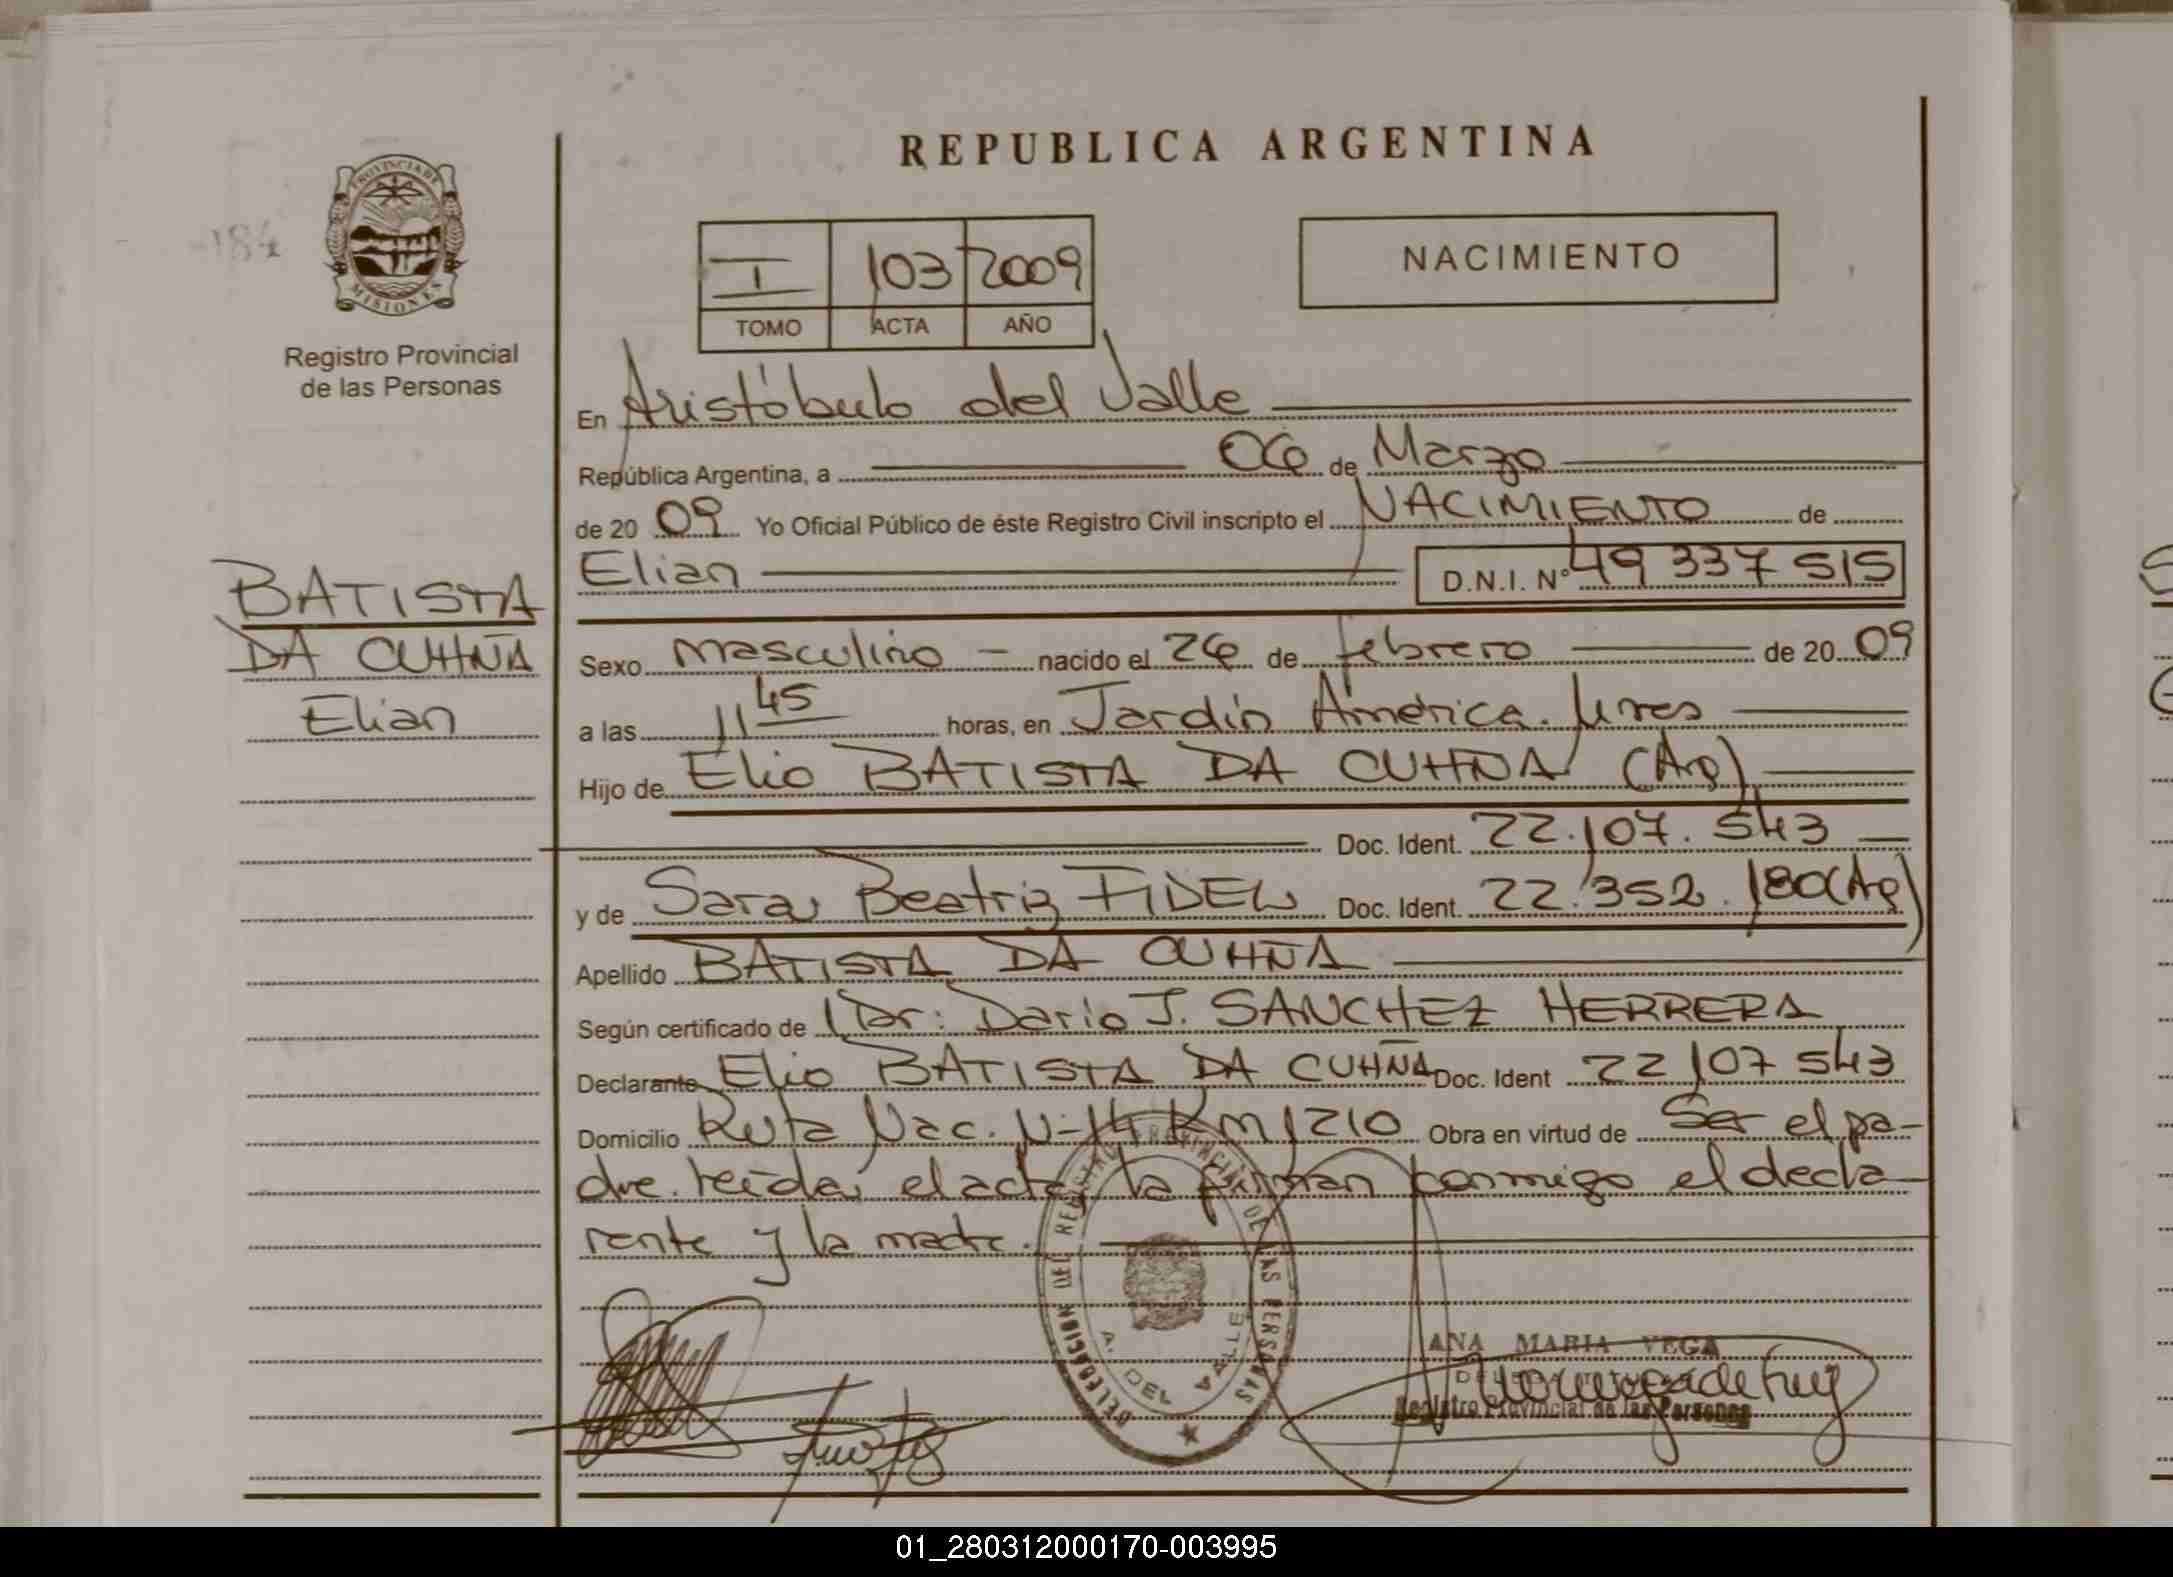 REPUBLICA ARGENTINA
-184
PROVINCIA DE
MISIONES
Registro Provincial
de las Personas
I 103 2009
TOMO ACTA AÑO
NACIMIENTO
En Aristóbulo del Valle
República Argentina, a 06 de Marzo
de 20 09 Yo Oficial Público de éste Registro Civil inscripto el NACIMIENTO de
Elian D.N.I. Nº 49 337 515
BATISTA
DA CUHÑA
Elian
Sexo masculino - nacido el 26 de febrero de 20 09
a las 11 45 horas, en Jardín América.
Hijo de Elio BATISTA DA CUHÑA (Ag)
Doc. Ident. 22.107.543
y de Sara Beatriz FIDEL Doc. Ident. 22.352.180 (Ag)
Apellido BATISTA DA CUHÑA
Según certificado de Dr: Darío J. SANCHEZ HERRERA
Declarante Elio BATISTA DA CUHÑA Doc. Ident 22107543
Domicilio Ruta Nac. Nº 14 Km 1210 Obra en virtud de Ser el pa-
dre. leída el acta la firman conmigo el decla-
rante y la madre.
DELEGACION DEL REGISTRO PROVINCIAL DE LAS PERSONAS
A. DEL VALLE
ANA MARIA VEGA
Registro Provincial de las Personas
01_280312000170-003995